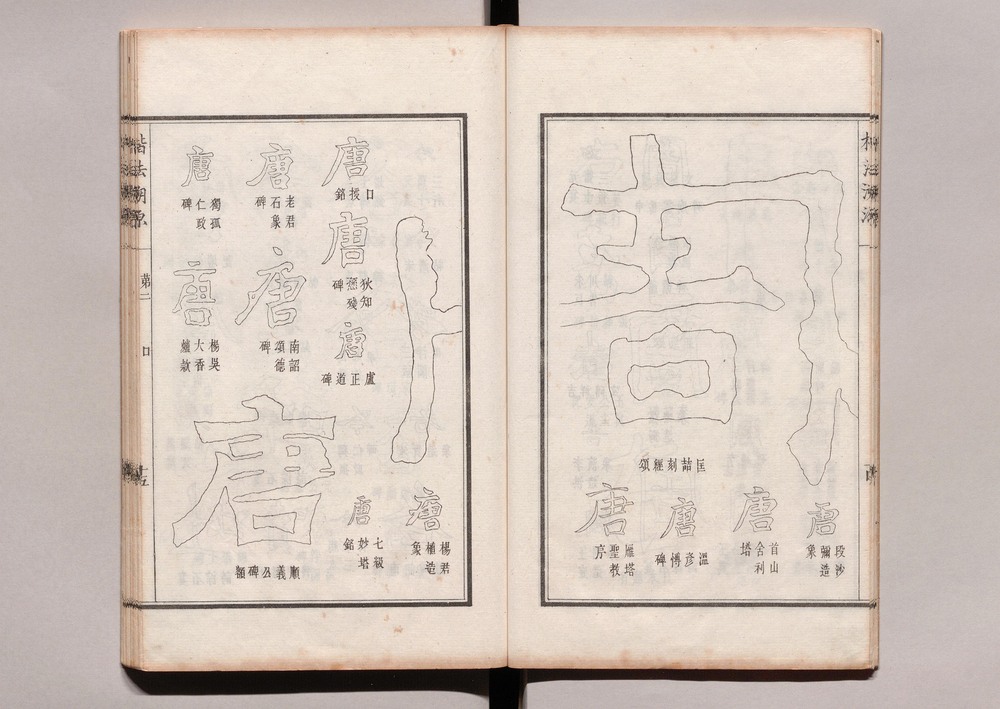 匡喆刻經頌
唐
段沙
彌造
象
唐
首山
舍利
塔
唐
溫彥博碑
唐
雁塔
聖教
序
唐
楊君
造
象
唐
七級
妙塔
銘
唐
口授銘
唐
狄知
愻殘
碑
唐
盧正道碑
唐
老君
石象
碑
唐
南詔
頌德
碑
唐
順義公碑額
唐
獨孤
仁政
碑
唐
楊吳
大香
爐款
楷法溯源
第二
口
十五